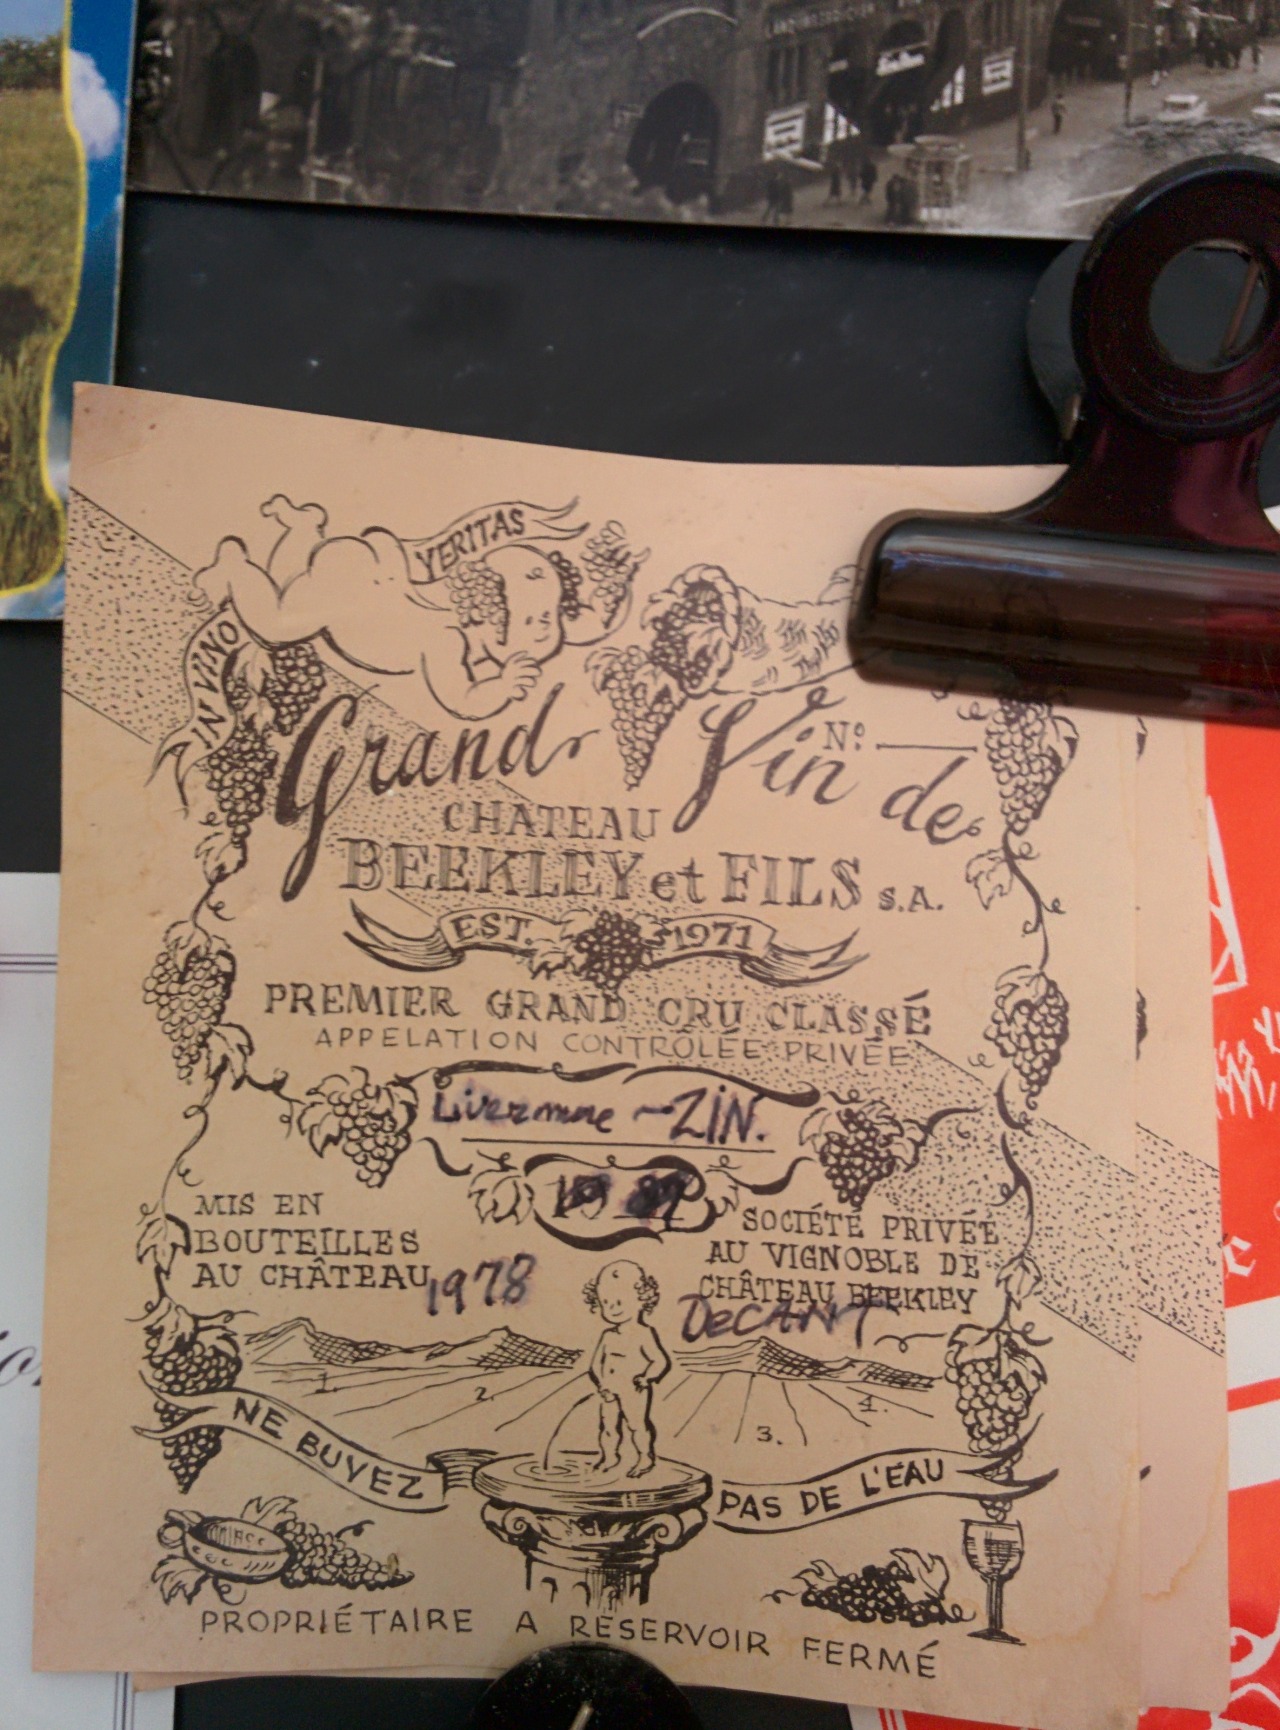 VERITAS
IN VINO
Grand Vin de
Nº
CHATEAU
BEEKLEY et FILS S.A.
EST. 1971
PREMIER GRAND CRU CLASSÉ
APPELATION CONTRÔLÉE PRIVÉE
Livermore ~ ZIN.
MIS EN
BOUTEILLES
AU CHÂTEAU
1978
SOCIÉTÉ PRIVÉE
AU VIGNOBLE DE
CHÂTEAU BEEKLEY
DeCANT
1.
2.
3.
4.
NE BUVEZ
PAS DE L'EAU
PROPRIÉTAIRE A RESERVOIR FERMÉ